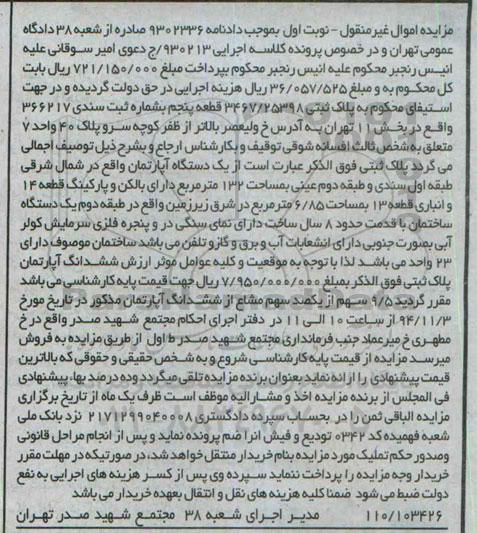 مزایده اموال غیرمنقول – نوبت اول بموجب دادنامه ۹۳۰۲۳۳۶ صادره از شعبه ۳۸ دادگاه
عمومی تهران و در خصوص پرونده کلاسه اجرایی ۹۳۰۲۱۳/ج دعوی امیر سوقانی علیه
انیس رنجبر محکوم علیه انیس رنجبر محکوم بپرداخت مبلغ ۷۲۱/۱۵۰/۰۰۰ ریال بابت
کل محکوم به و مبلغ ۳۶/۰۵۷/۵۲۵ ریال هزینه اجرایی در حق دولت گردیده و در جهت
استیفای محکوم به پلاک ثبتی ۳۴۶۷/۲۵۳۹۸ قطعه پنجم بشماره ثبت سندی ۳۶۶۲۱۷
واقع در بخش ۱۱ تهران به آدرس خ ولیعصر بالاتر از ظفر کوچه سرو پلاک ۴۰ واحد ۷
متعلق به شخص ثالث افسانه شوقی توقیف و بکارشناس ارجاع و بشرح ذیل توصیف اجمالی
می گردد پلاک ثبتی فوق الذکر عبارت است از یک دستگاه آپارتمان واقع در شمال شرقی
طبقه اول سندی و طبقه دوم عینی بمساحت ۱۳۲ مترمربع دارای بالکن و پارکینگ قطعه ۱۴
و انباری قطعه ۱۳ بمساحت ۶/۸۵ مترمربع در شرق زیرزمین واقع در طبقه دوم یک دستگاه
ساختمان با قدمت حدود ۸ سال ساخت دارای نمای سنگی در و پنجره فلزی سرمایش کولر
آبی بصورت جنوبی دارای انشعابات آب و برق و گاز و تلفن می باشد ساختمان موصوف دارای
۲۳ واحد می باشد لذا با توجه به موقعیت و کلیه عوامل موثر ارزش ششدانگ آپارتمان
پلاک ثبتی فوق الذکر بمبلغ ۷/۹۵۰/۰۰۰/۰۰۰ ریال جهت قیمت پایه کارشناسی می باشد
مقرر گردید ۹/۵ سهم از یکصد سهم مشاع از ششدانگ آپارتمان مذکور در تاریخ مورخ
۹۴/۱۱/۳ از ساعت ۱۰ الی ۱۱ در دفتر اجرای احکام مجتمع شهید صدر واقع در خ
مطهری خ میرعماد جنب فرمانداری مجتمع شهید صدر ط اول از طریق مزایده به فروش
میرسد مزایده از قیمت پایه کارشناسی شروع و به شخص حقیقی و حقوقی که بالاترین
قیمت پیشنهادی را ارائه نماید بعنوان برنده مزایده تلقی میگردد و ده درصد بها، پیشنهادی
فی المجلس از برنده مزایده اخذ و مشارالیه موظف است ظرف یک ماه از تاریخ برگزاری
مزایده الباقی ثمن را در بحساب سپرده دادگستری ۲۱۷۱۲۹۹۰۴۰۰۰۸ نزد بانک ملی
شعبه فهمیده کد ۰۳۴۲ تودیع و فیش انرا ضم پرونده نماید و پس از انجام مراحل قانونی
وصدور حکم تملیک مورد مزایده بنام خریدار منتقل خواهد شد، در صورتیکه در مهلت مقرر
خریدار وجه مزایده را پرداخت ننماید سپرده وی پس از کسر هزینه های اجرایی به نفع
دولت ضبط می شود ضمنا کلیه هزینه های نقل و انتقال بعهده خریدار می باشد
۱۱۰/۱۰۳۴۲۶ مدیر اجرای شعبه ۳۸ مجتمع شهید صدر تهران